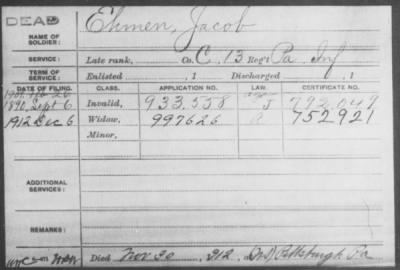 DEAD
NAME OF SOLDIER: Ehmen, Jacob
SERVICE: Late rank, Co. C, 13 Reg't Pa. Inf
TERM OF SERVICE: Enlisted , 1 Discharged , 1
DATE OF FILING. CLASS. APPLICATION NO. LAW. CERTIFICATE NO.
1890 Sept 6 Invalid, 933.558 J 792.049
1912 Dec 6 Widow, 997626 752921
Minor,
ADDITIONAL SERVICES:
REMARKS:
Died Nov 30 , 912, Pittsburgh Pa